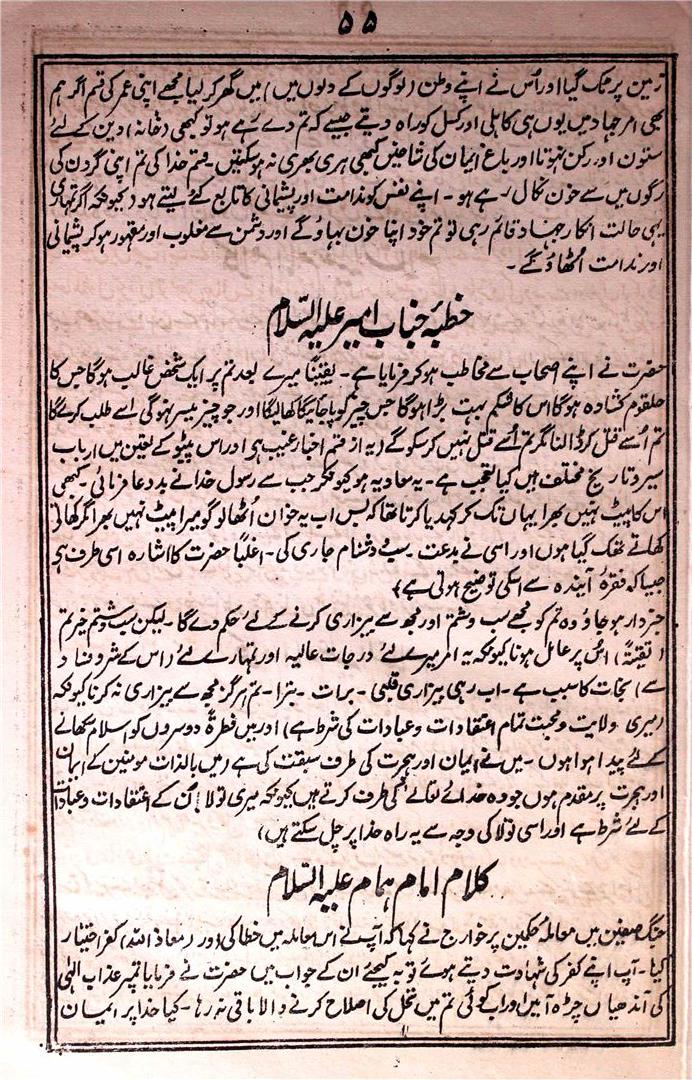 ۵۵
زمین پر ٹک گیا اور اُس نے اپنے وطن (لوگوں کے دلوں میں) میں گھر کر لیا مجھے اپنی عمر کی قسم اگر ہم
بھی امر جہاد میں یوں ہی کاہلی اور کسل کو راہ دیتے جیسے کہ تم دے رہے ہو تو کبھی (خانہ) دین کے لئے
ستون اور رکن نہوتا اور باغ ایمان کی شاخیں کبھی ہری بھری نہ ہوسکتیں۔ قسم خدا کی تم اپنی گردن کی
رگوں میں سے خون نکال رہے ہو۔ اپنے نفس کو ندامت اور پشیمانی کا تابع کئے لیتے ہو (کیونکہ اگر تمہاری
یہی حالت انکار جہاد قائم رہی تو تم خود اپنا خون بہاؤگے اور دشمن سے مغلوب اور مقہور ہو کر پشیمانی
اور ندامت اُٹھاؤگے۔
خطبۂ جناب امیر علیہ السّلام
حضرت نے اپنے اصحاب سے مخاطب ہو کر فرمایا ہے۔ یقینًا میرے بعد تم پر ایک شخص غالب ہوگا جس کا
حلقوم کشادہ ہوگا اس کا شکم بہت بڑا ہوگا جس چیز کو پائیگا کھالیگا اور جو چیز میسر نہوگی اسے طلب کرےگا
تم اُسے قتل کر ڈالنا مگر تم اُسے قتل نہیں کر سکوگے (یہ از قسم اخبار غیب ہی اور اس پیٹو کے تعین میں ارباب
سیر و تاریخ مختلف ہیں کیا تعجب ہے۔ یہ معاویہ ہو کیونکہ جب سے رسول خدا نے بددعا فرمائی۔ کبھی
اس کا پیٹ نہیں بھرا یہاں تک کہ کہدیا کرتا تھا کہ بس اب یہ خوان اُٹھا لو گو میرا پیٹ نہیں بھرا مگر کھاتے
کھاتے تھک گیا ہوں اور اسی نے بدعت۔ سب و دشنام جاری کی۔ اغلبًا حضرت کا اشارہ اسی طرف ہی
جیسا کہ فقرۂ آیندہ سے اسکی توضیح ہوتی ہے)
خبردار ہو جاؤ وہ تم کو مجھے سب و شتم اور مجھ سے بیزاری کرنے کے لئے حکم دے گا۔ لیکن سب و شتم خیر تم
(تقیتہً) اس پر عامل ہونا کیونکہ یہ امر میرے لئے درجات عالیہ اور تمہارے لئے (اس کے شر و فساد
سے) نجات کا سبب ہے۔ اب رہی بیزاری قلبی۔ برات۔ تبرا۔ تم ہرگز مجھ سے بیزاری نہ کرنا کیونکہ
(میری ولایت و محبت تمام اعتقادات و عبادات کی شرط ہے) اور میں فطرۃً دوسروں کو اسلام سکھانے
کے لئے پیدا ہوا ہوں۔ میں نے ایمان اور ہجرت کی طرف سبقت کی ہے (میں بالذات مومنین کے ایمان
اور ہجرت پر مقدم ہوں جو وہ خدائے تعالےٰ کی طرف کرتے ہیں کیونکہ میری تولا اُن کے اعتقادات و عبادات
کے لئے شرط ہے اور اسی تولا کی وجہ سے یہ راہ خدا پر چل سکتے ہیں)
کلام امام ہمام علیہ السّلام
جنگ صفین میں معاملۂ حکمین پر خوارج نے کہا کہ آپ نے اس معاملہ میں خطا کی اور (معاذ اللہ) کفر اختیار
کیا۔ آپ اپنے کفر کی شہادت دیتے ہوئے توبہ کیجئے ان کے جواب میں حضرت نے فرمایا تمپر عذاب الٰہی
کی آندھیاں چڑھ آئیں اور اب کوئی تم میں نخل کی اصلاح کرنے والا باقی نہ رہا۔ کیا خدا پر ایمان